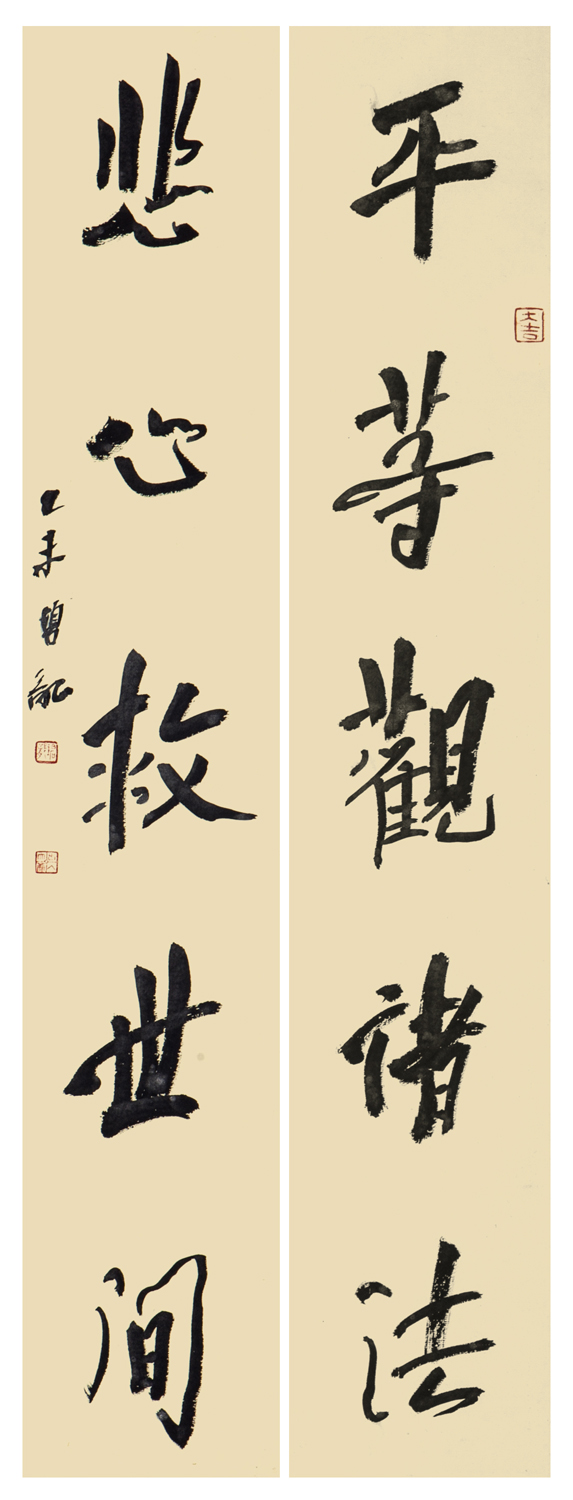 平等觀諸法
大吉
悲心救世間
乙未